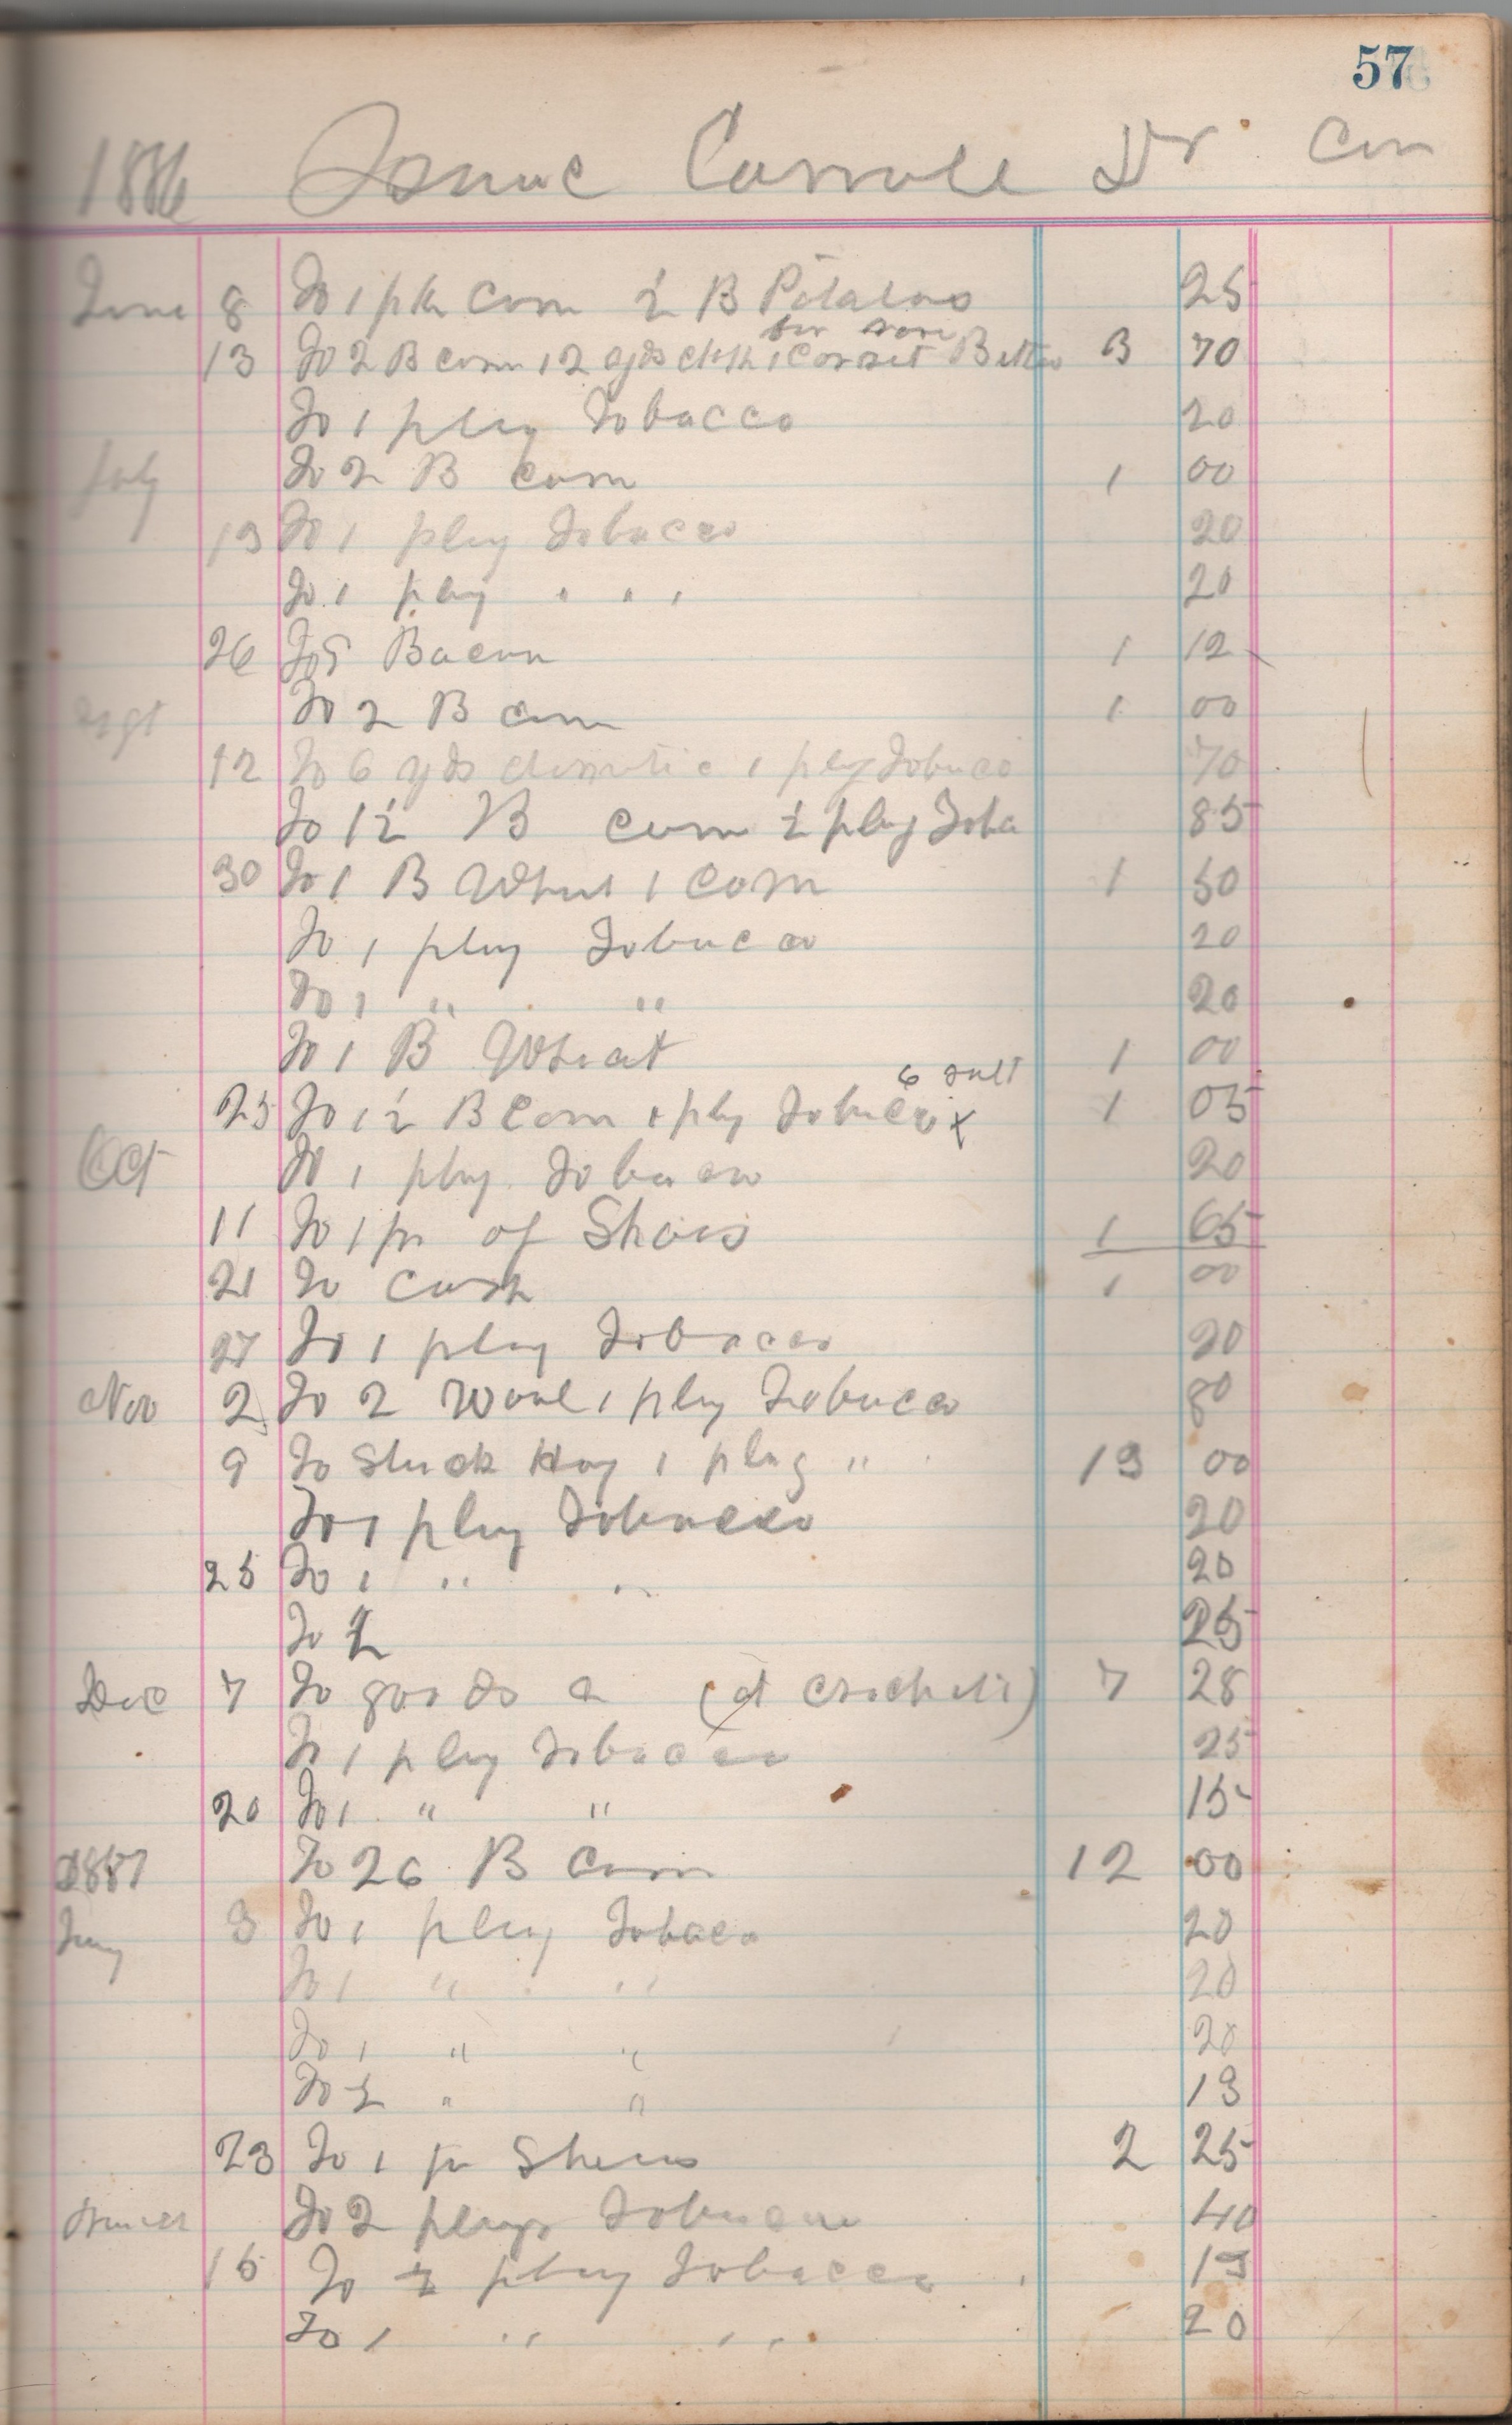 57
1886 Isaac Carrole Dr Con
June 8 To 1 pk Corn ½ B Potatoes 25
13 To 2 B corn 12 yds cloth 1 Corset 3 70
To 1 plug Tobacco 20
July To 2 B corn 1 00
13 To 1 plug Tobacco 20
To 1 plug " " " 20
26 To 5 Bacon 1 12
To 2 B corn 1 00
12 To 6 yds 1 plug Tobaco 70
To 1½ B corn ½ plug Toba 85
30 To 1 B Wheat 1 Corn 1 50
To 1 plug Tobacco 20
To 1 " " 20
To 1 B Wheat 1 00
6 salt
25 To 1½ B Corn 1 plug Tobacco x 1 05
Oct To 1 plug Tobacco 20
11 To 1 pr of Shoes 1 65
21 To Cash 1 00
27 To 1 plug Tobacco 20
Nov 2 To 2 1 plug Tobacco 80
9 To Stack Hay 1 plug " 13 00
To 1 plug Tobacco 20
25 To 1 " " 20
To 25
Dec 7 To goods a (at ) 7 28
To 1 plug Tobacco 25
20 To 1 " " 15
1887 To 26 B Corn 12 00
Jany 3 To 1 plug Tobaco 20
To 1 " " 20
To 1 " " 20
To ½ " " 13
23 To 1 pr Shoes 2 25
To 2 plugs Tobacco 40
15 To ½ plug Tobacco 13
To 1 " " 20